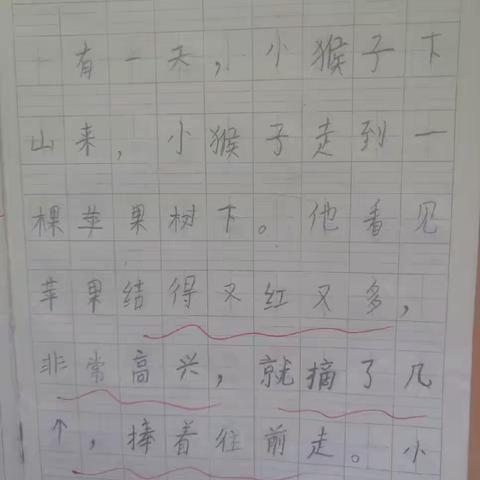 有一天，小猴子下
山来，小猴子走到一
棵苹果树下。他看见
苹果结得又红又多，
非常高兴，就摘了几
个，捧着往前走。小